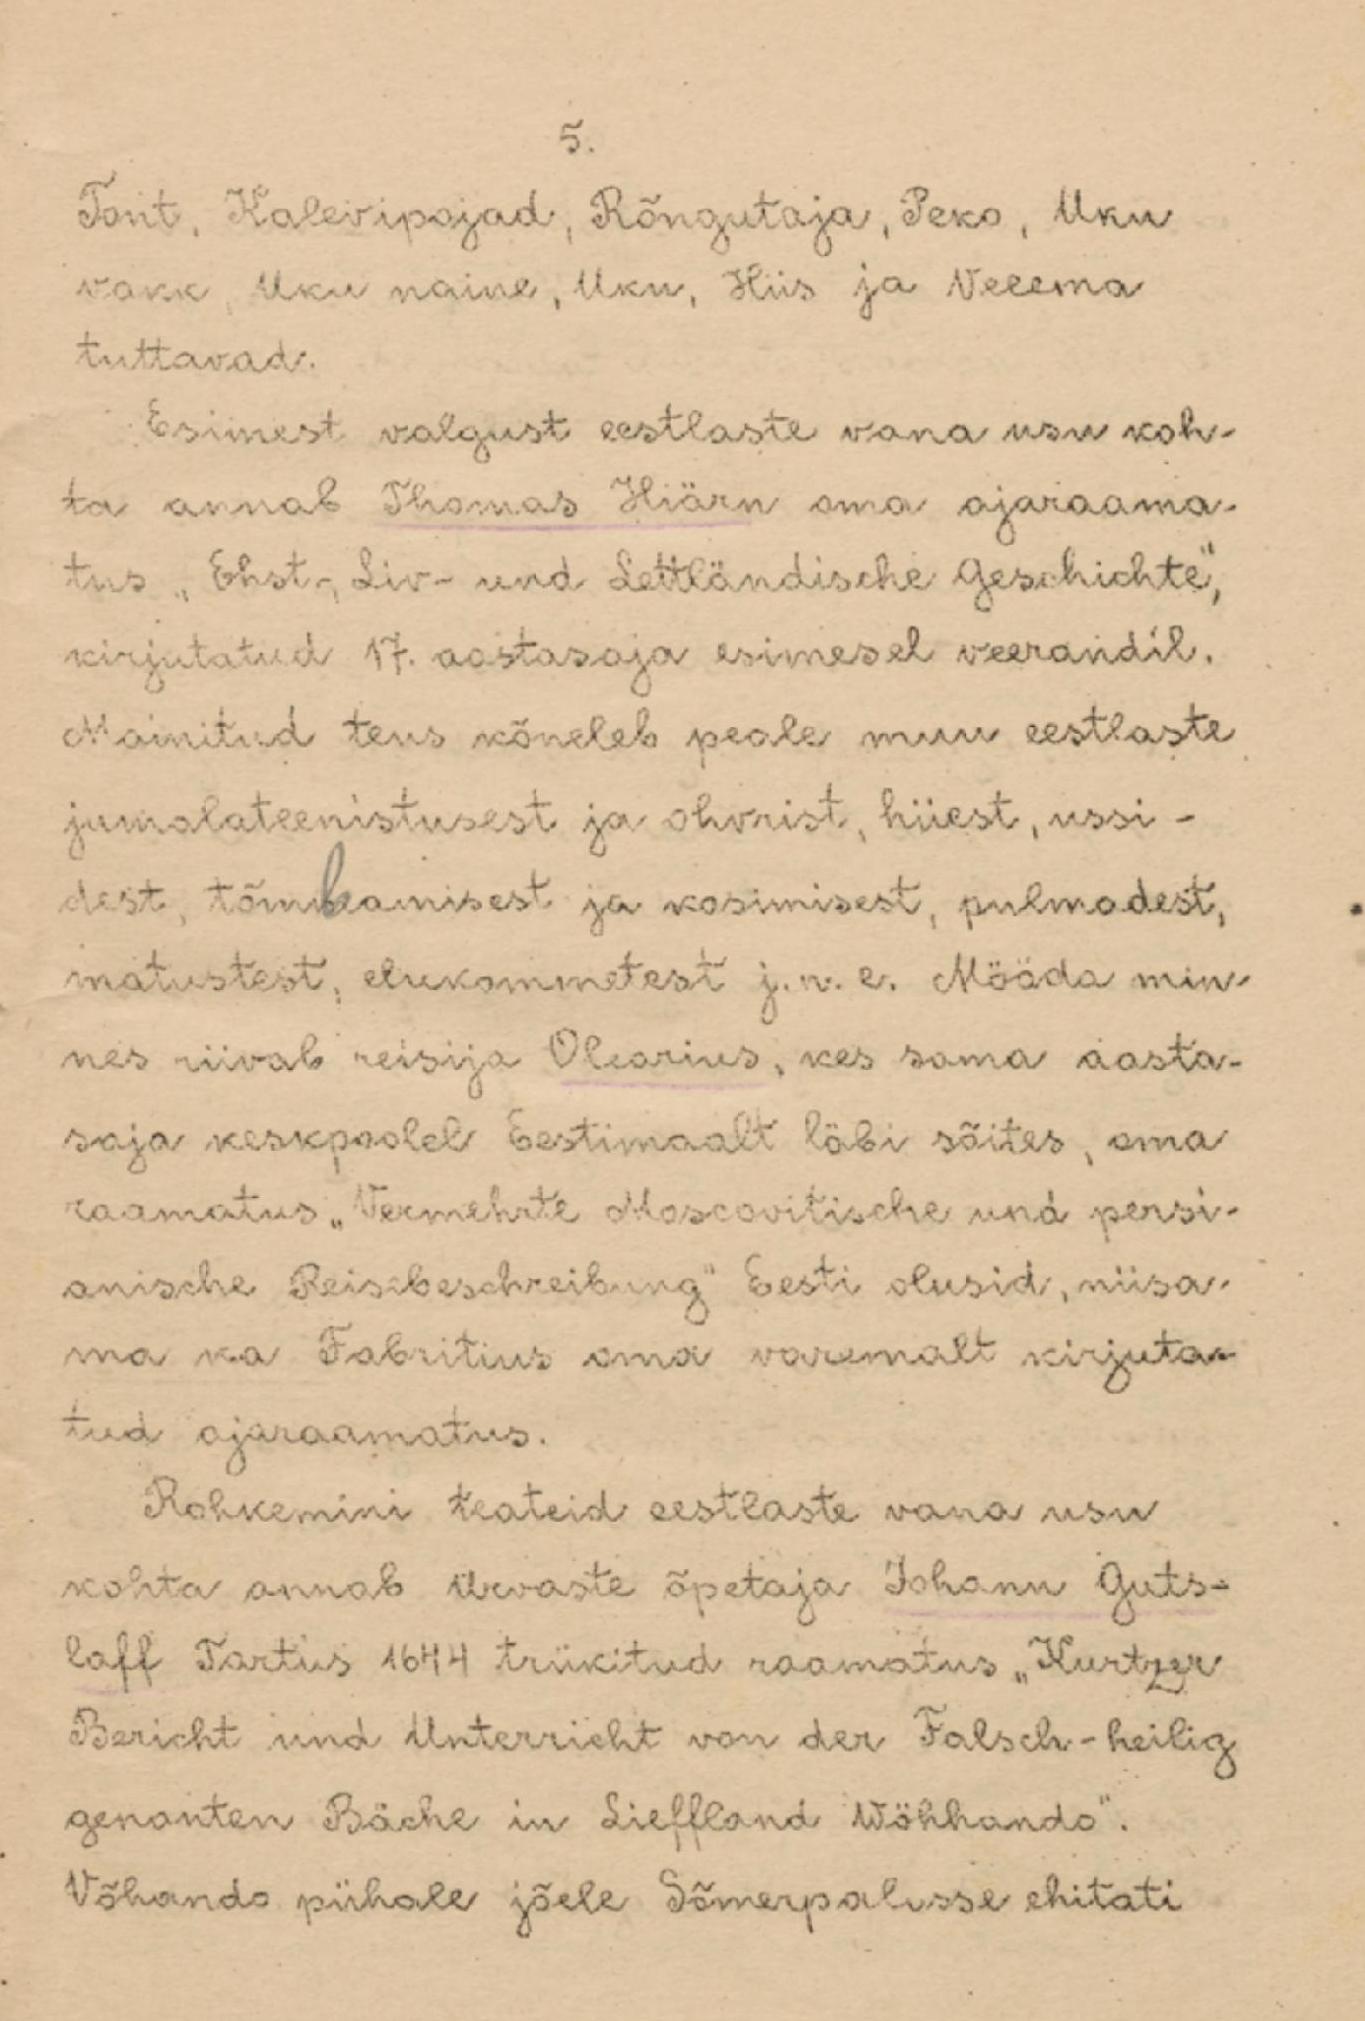 5.
Tont, Kalevipojad, Rõngutaja, Peko, Uku
vakk, Uku naine, Uku, Hiis ja Veeema
tuttavad.
Esimest valgust eestlaste vana usu koh-
ta annab Thomas Hiärn oma ajaraama-
tus „Ehst-, Liv- und Lettländische Geschichte",
kirjutatud 17. aastasaja esimesel veerandil.
Mainitud teus kõneleb peale muu eestlaste
jumalateenistusest ja ohvrist, hiiest, ussi-
dest, tõmbamisest ja kosimisest, pulmadest,
matustest, elukommetest j.n.e. Mööda min-
nes riivab reisija Olearius, kes sama aasta-
saja keskpoolel Eestimaalt läbi sõites, oma
raamatus „Vermehrte Moscovitische und persi-
anische Reisebeschreibung" Eesti olusid, niisa-
ma ka Fabritius oma varemalt kirjuta-
tud ajaraamatus.
Rohkemini teateid eestlaste vana usu
kohta annab Urvaste õpetaja Johann Guts-
laff Tartus 1644 trükitud raamatus „Kurtzer
Bericht und Unterricht von der Falsch-heilig
genanten Bäche in Lieffland Wöhhando".
Võhando pühale jõele Sõmerpalusse ehitati